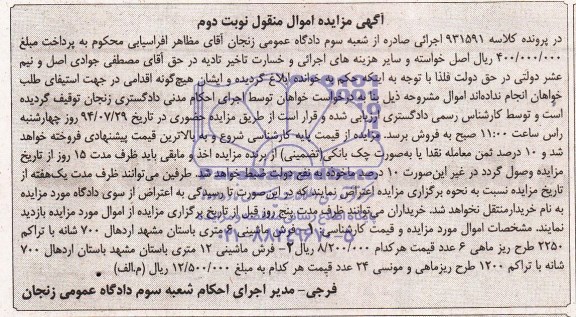 آگهی مزایده اموال منقول نوبت دوم
در پرونده کلاسه ۹۳۱۵۹۱ اجرائی صادره از شعبه سوم دادگاه عمومی زنجان آقای مظاهر افراسیابی محکوم به پرداخت مبلغ
۴۰۰/۰۰۰/۰۰۰ ریال اصل خواسته و سایر هزینه های اجرائی و خسارت تاخیر تادیه در حق آقای مصطفی جوادی اصل و نیم
عشر دولتی در حق دولت فلذا با توجه به اینکه حکم به خوانده ابلاغ گردیده و ایشان هیچ‌گونه اقدامی در جهت استیفای طلب
خواهان انجام نداده‌اند اموال مشروحه ذیل بنا به درخواست خواهان توسط اجرای احکام مدنی دادگستری زنجان توقیف گردیده
است و توسط کارشناس رسمی دادگستری ارزیابی شده و قرار است از طریق مزایده حضوری در تاریخ ۹۴/۰۷/۲۹ روز چهارشنبه
راس ساعت ۱۱:۰۰ صبح به فروش برسد. مزایده از قیمت پایه کارشناسی شروع و به بالاترین قیمت پیشنهادی فروخته خواهد
شد و ۱۰ درصد ثمن معامله نقدا یا به‌صورت چک بانکی (تضمینی) از برنده مزایده اخذ و مابقی باید ظرف مدت ۱۵ روز از تاریخ
مزایده وصول گردد در غیر این‌صورت ۱۰ درصد ماخوذه به نفع دولت ضبط خواهد شد. طرفین می‌توانند ظرف مدت یک‌هفته از
تاریخ مزایده نسبت به نحوه برگزاری مزایده اعتراض نمایند که در این‌صورت تا رسیدگی به اعتراض از سوی دادگاه مورد مزایده
به نام خریدار منتقل نخواهد شد. خریداران می‌توانند ظرف مدت پنج روز قبل از تاریخ برگزاری مزایده از اموال مورد مزایده بازدید
نمایند. مشخصات اموال مورد مزایده و قیمت کارشناسی: ۱- فرش ماشینی ۶ متری باستان مشهد اردهال ۷۰۰ شانه با تراکم
۲۲۵۰ طرح ریز ماهی ۶ عدد قیمت هر کدام ۸/۲۰۰/۰۰۰ ریال ۲- فرش ماشینی ۱۲ متری باستان مشهد باستان اردهال ۷۰۰
شانه با تراکم ۱۲۰۰ طرح ریزماهی و مونسی ۲۴ عدد قیمت هر کدام به مبلغ ۱۲/۵۰۰/۰۰۰ ریال (م‌الف)
فرجی- مدیر اجرای احکام شعبه سوم دادگاه عمومی زنجان